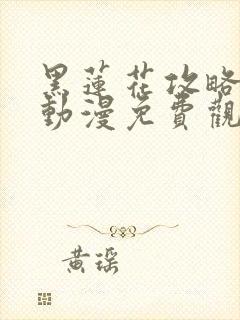 黑蓮花攻略
動漫免費觀
黃琛